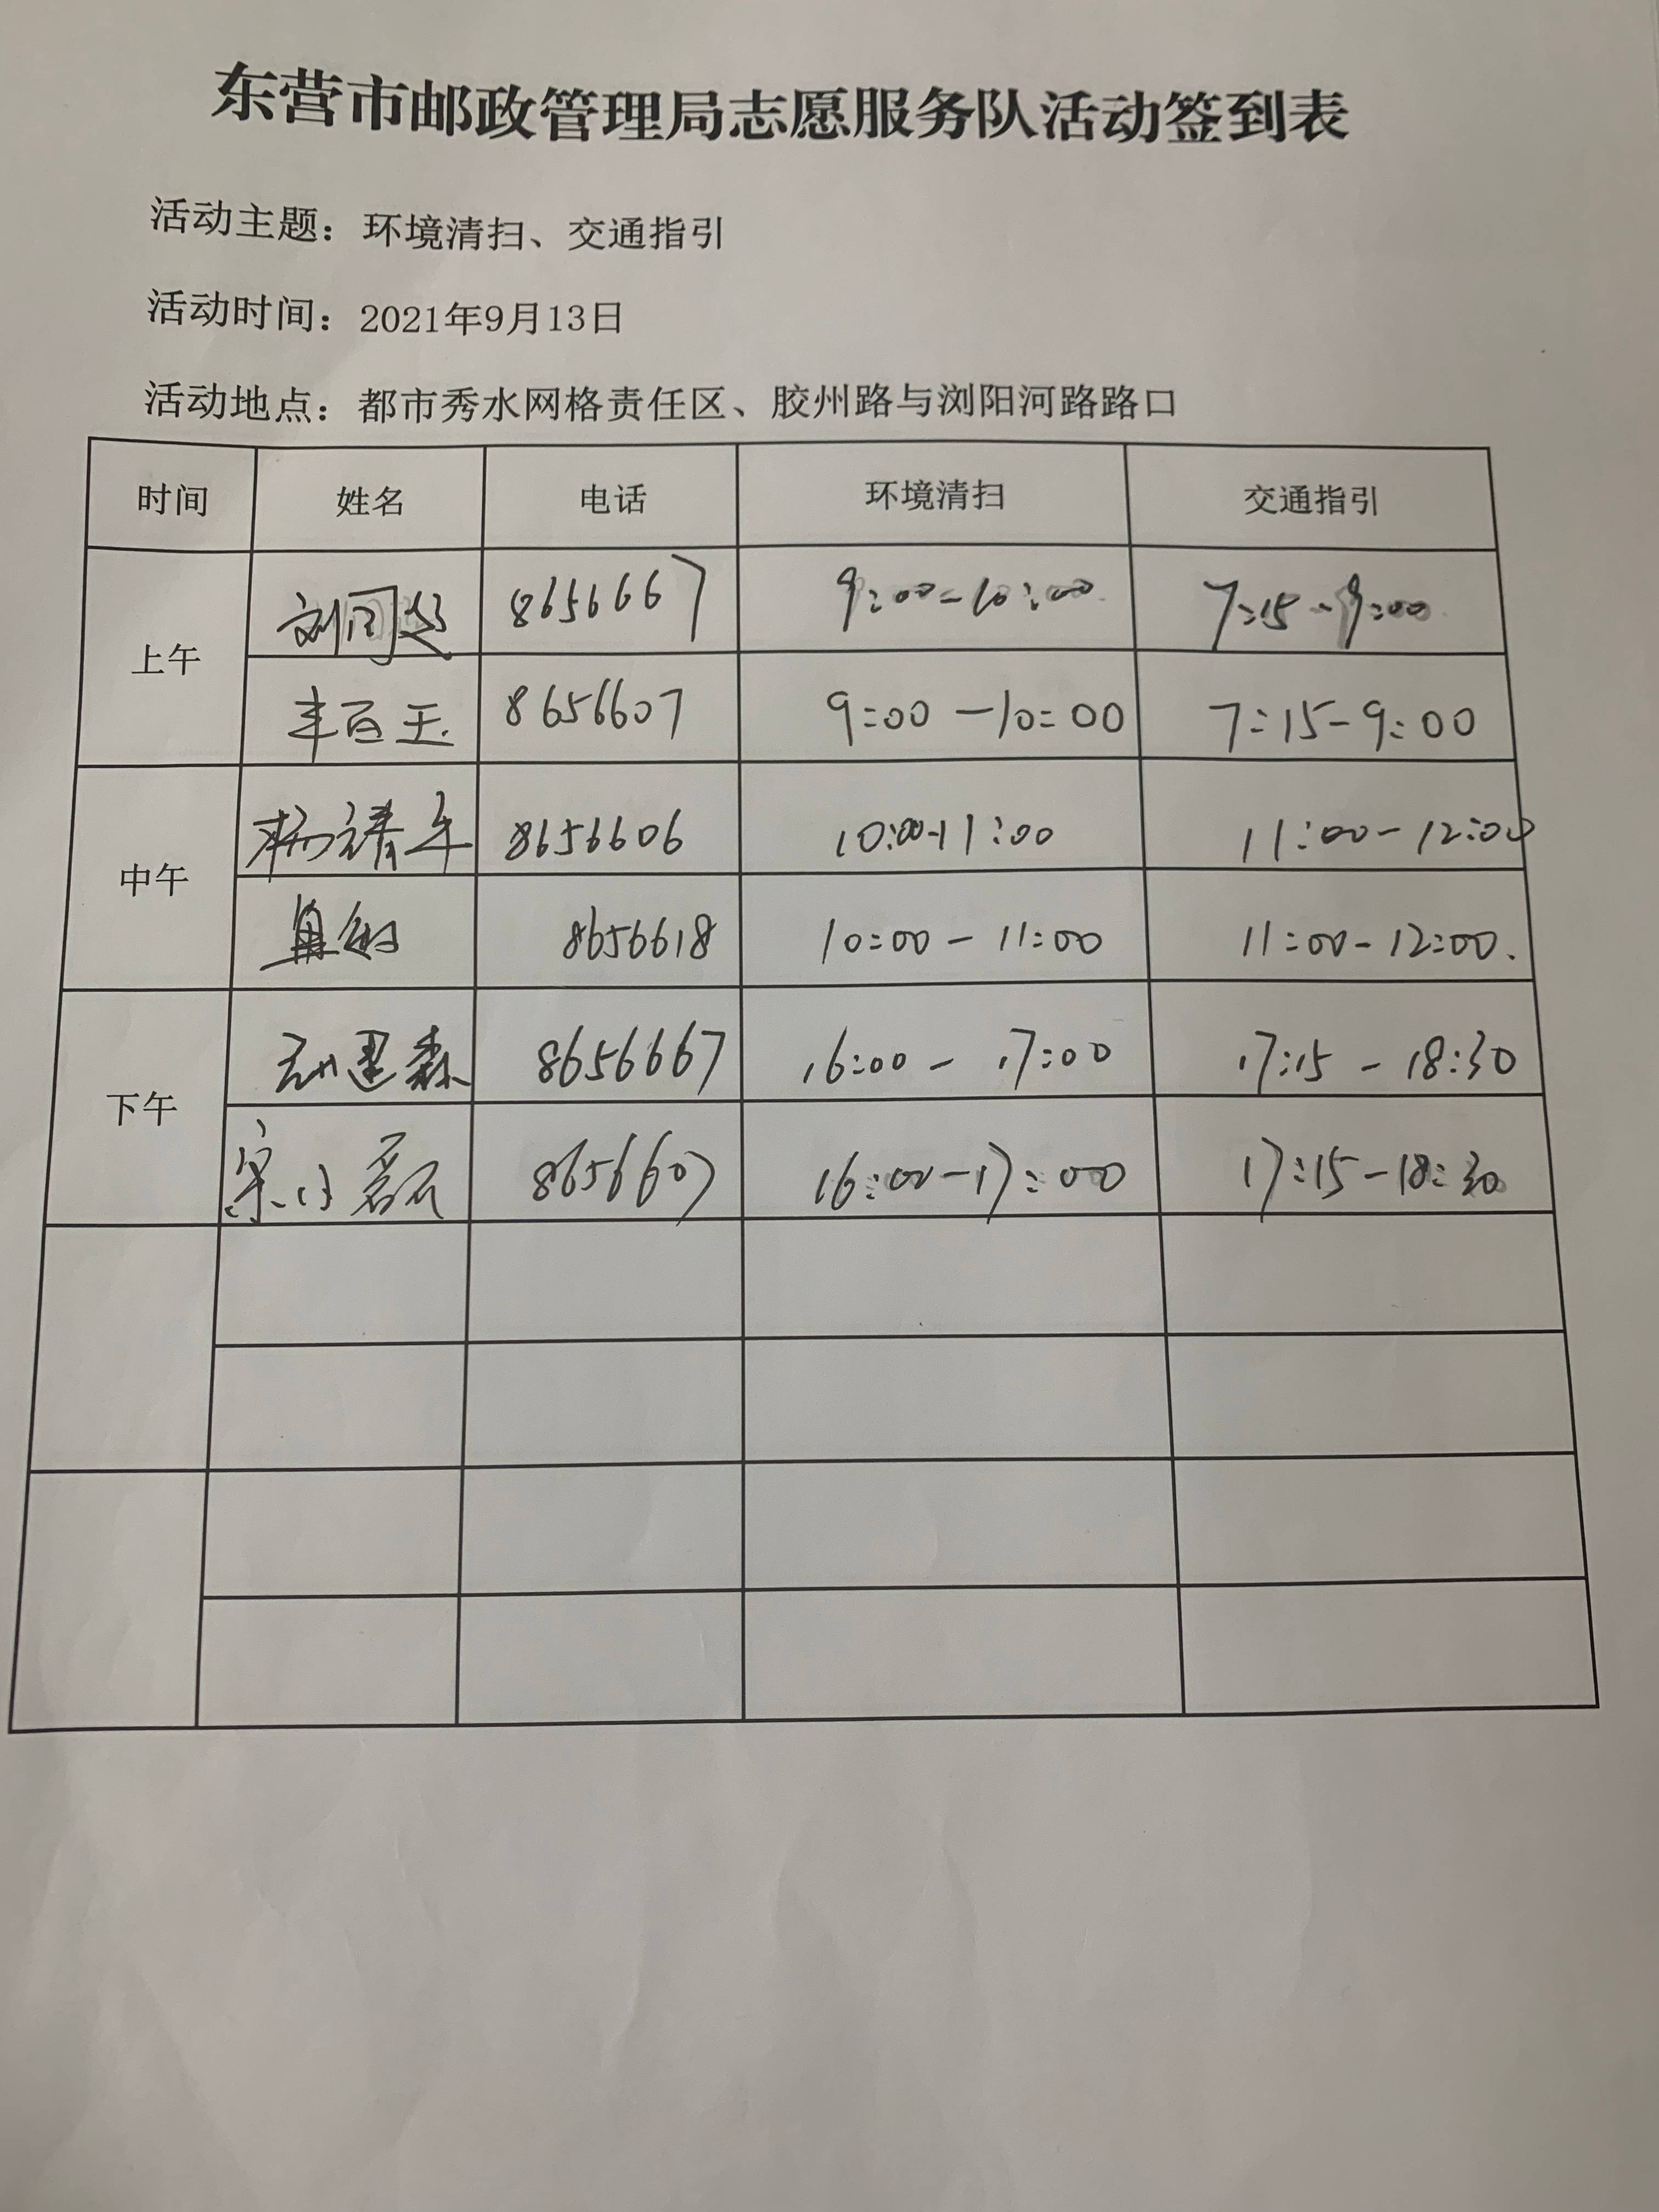 东营市邮政管理局志愿服务队活动签到表
活动主题：环境清扫、交通指引
活动时间：2021年9月13日
活动地点：都市秀水网格责任区、胶州路与浏阳河路路口
时间 姓名 电话 环境清扫 交通指引
上午
8656667 9:00-10:00 7:15-9:00
丰百玉 8656607 9:00-10:00 7:15-9:00
中午
8656606 10:00-11:00 11:00-12:00
8656618 10:00-11:00 11:00-12:00.
下午
8656667 16:00-17:00 17:15-18:30
8656607 16:00-17:00 17:15-18:30